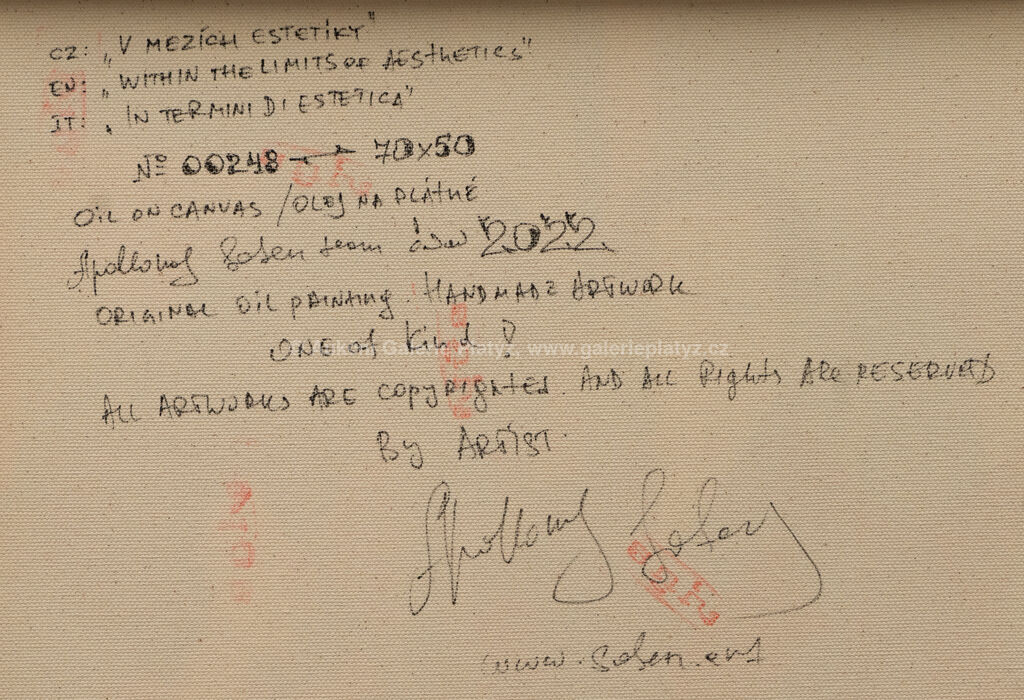 CZ: „V MEZÍCH ESTETIKY"
EN: „WITHIN THE LIMITS OF AESTHETICS"
IT: „IN TERMINI DI ESTETICA"
Nº 00248 70x50
OIL ON CANVAS / OLEJ NA PLÁTNĚ
Apollonij Soben team 2022
ORIGINAL OIL PAINTING. HANDMADE ARTWORK
ONE of Kind!
Galerie Platýz, www.galerieplatyz.cz
ALL ARTWORKS ARE COPYRIGHTED. AND ALL Rights ARE RESERVED
By ARTIST.